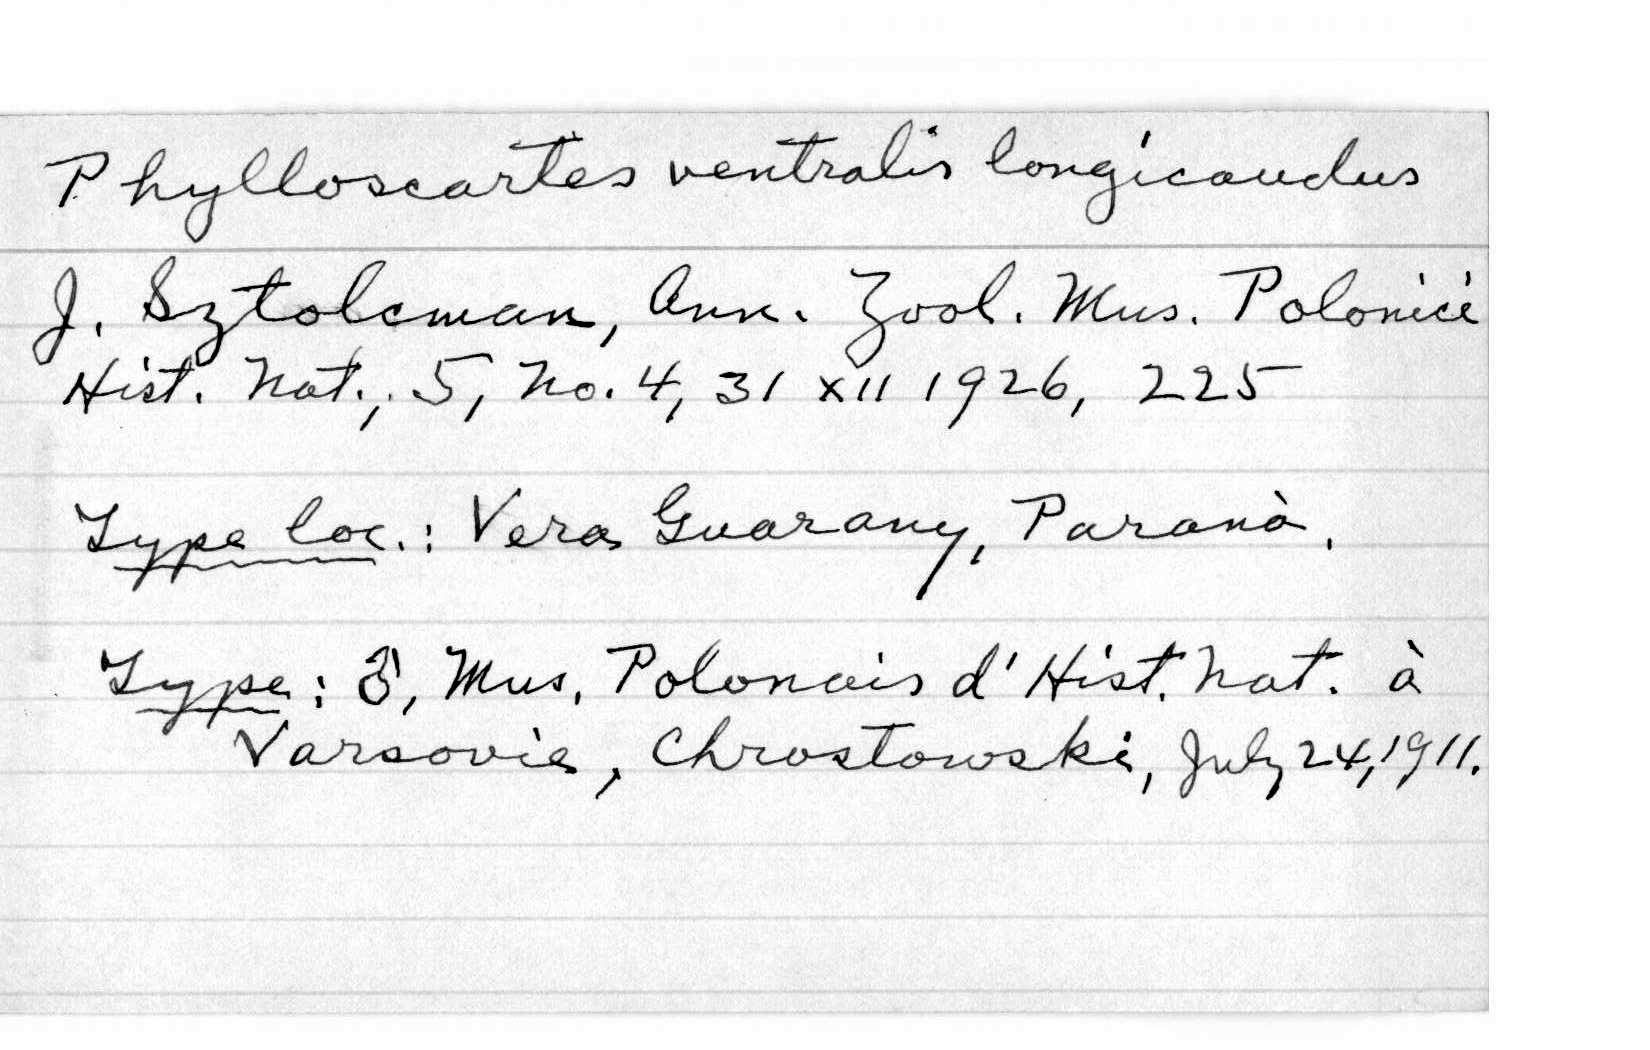 Phylloscartes ventralis longicaudus
J. Sztolcman, Ann. Zool. Mus. Polonici
Hist. Nat., 5, No. 4, 31 XII 1926, 225
Type loc.: Vera Guarany, Paranà.
Type: ♂, Mus. Polonais d'Hist. Nat. à
Varsovie, Chrostowski, July 24, 1911.